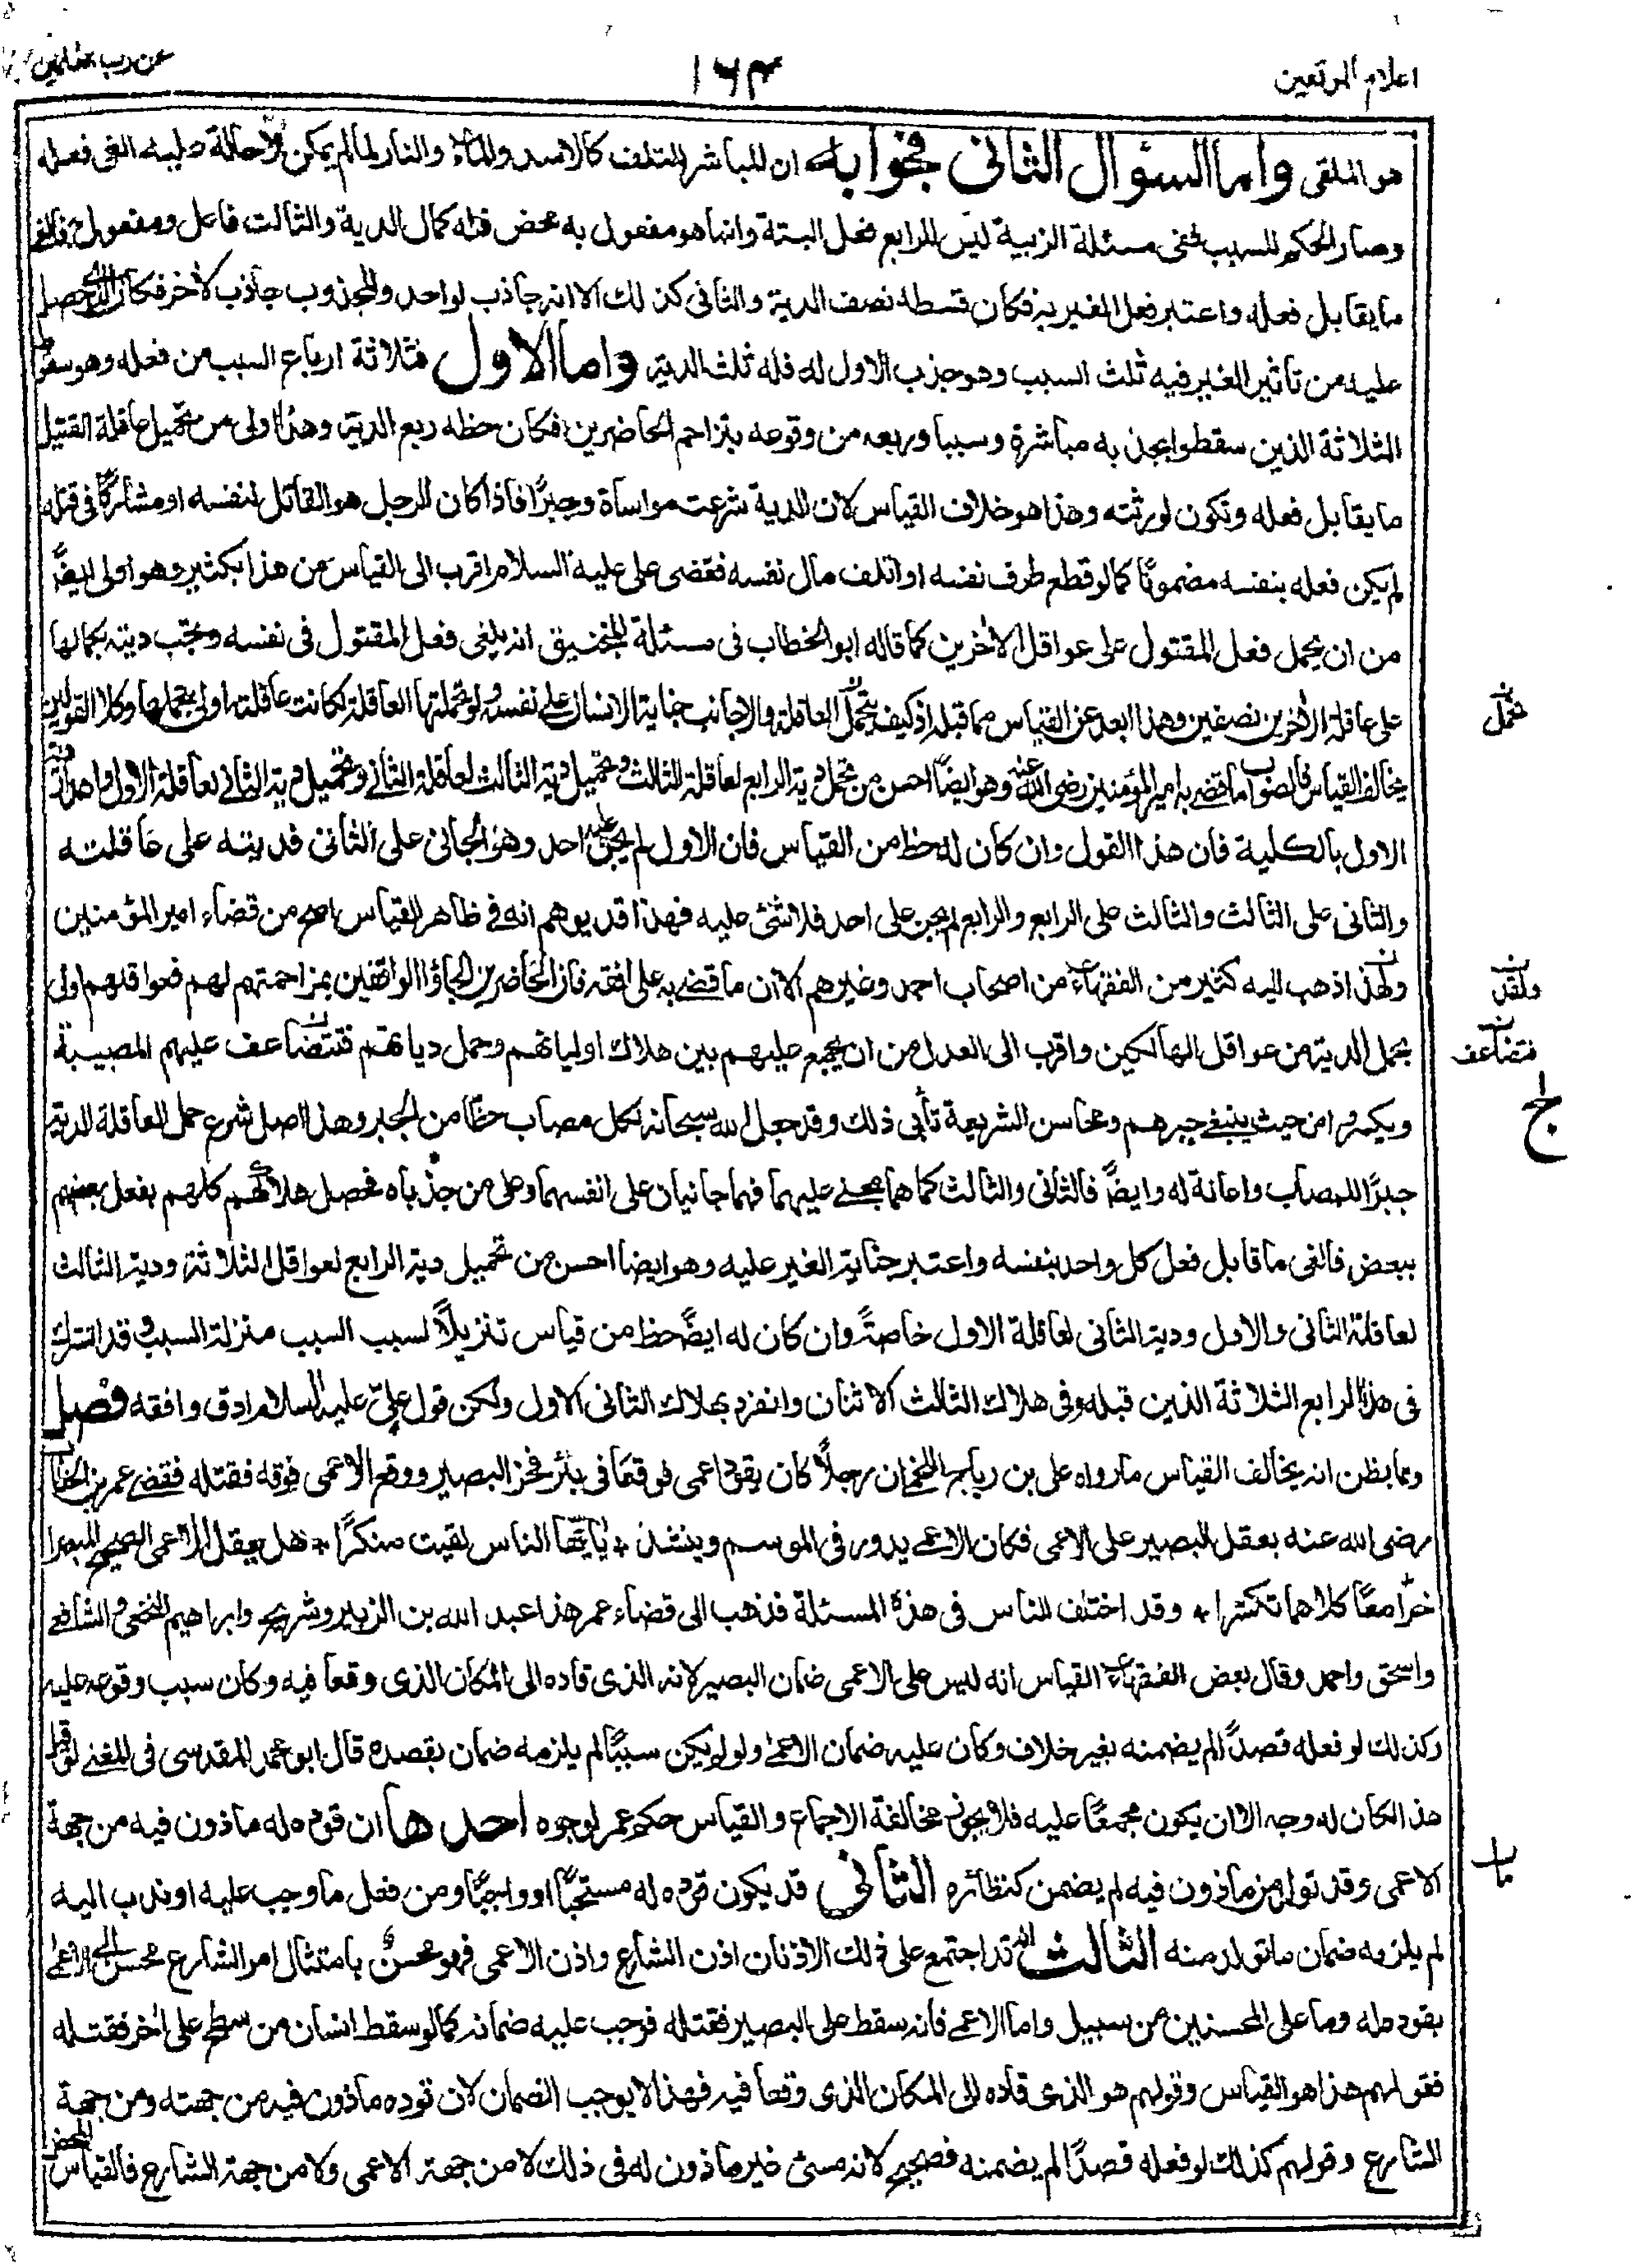 اعلام الموقعين
١٦٣
عن رب العلمين
هو الملقى واما السؤال الثانى فجوابه ان المباشر المتلف كالاسد والماء والنار لما لم يمكن الاحالة عليه الغى فعله
وصار الحكم للسبب ففى مسئلة الزبية ليس للرابع فعل البتة وانما هو مفعول به محض فله كمال الدية والثالث فاعل ومفعول به فالغى
ما يقابل فعله واعتبر فعل الغير به فكان قسطه نصف الدية والثانى كذلك الا انه جاذب لواحد والمجذوب جاذب لاخر فكان الذى حصل
عليه من تأثير الغير فيه ثلث السبب وهو جذب الاول له فله ثلث الدية واما الاول فثلاثة ارباع السبب من فعله وهو سقوط
الثلاثة الذين سقطوا بجذبه مباشرة وسببا وربعه من وقوعه بتزاحم الحاضرين فكان حظه ربع الدية وهذا اولى من تحميل عاقلة القتيل
ما يقابل فعله وتكون لورثته وهذا هو خلاف القياس لان الدية شرعت مواساة وجبرًا فاذا كان الرجل هو القاتل لنفسه او مشاركًا فى قتله
لم يكن فعله بنفسه مضمونًا كما لو قطع طرف نفسه او اتلف مال نفسه فقضى على عليه السلام اقرب الى القياس من هذا بكثير وهو اولى ايضًا
من ان يحمل فعل المقتول على عواقل الاخرين كما قاله ابو الخطاب فى مسئلة المنجنيق انه يلغى فعل المقتول فى نفسه وتجب ديته بكمالها
على عاقلة الاخرين نصفين وهذا ابعد عن القياس مما قبله اذ كيف تتحمل العاقلة والاجانب جناية الانسان على نفسه ولو تحملتها العاقلة لكانت عاقلته اولى بتحملها وكلا القولين
تحمل
يخالف القياس فالصواب ما قضى به امير المؤمنين رضى الله عنه وهو ايضًا احسن من تحميل دية الرابع لعاقلة الثالث وتحميل دية الثالث لعاقلة الثانى وتحميل دية الثانى لعاقلة الاول واهدار دية
الاول بالكلية فان هذا القول وان كان له حظ من القياس فان الاول لم يجن عليه احد وهو الجانى على الثانى فديته على عاقلته
والثانى على الثالث والثالث على الرابع والرابع لم يجن على احد فلا شئ عليه فهذا قد يوهم انه فى ظاهر القياس اصح من قضاء امير المؤمنين
ولهذا ذهب اليه كثير من الفقهاء من اصحاب احمد وغيرهم الا ان ما قضى به على افقه فان الحاضرين الجاؤا الواقفين بمزاحمتهم لهم فعواقلهم اولى
بحمل الدية من عواقل الهالكين واقرب الى العدل من ان يجمع عليهم بين هلاك اوليائهم وحمل دياتهم فتتضاعف عليهم المصيبة
فتضاعف
ويكسروا من حيث ينبغى جبرهم ومحاسن الشريعة تأبى ذلك وقد جعل الله سبحانه لكل مصاب حظا من الجبر وهذا اصل شرع حمل العاقلة الدية
ج
جبرًا للمصاب واعانة له وايضًا فالثانى والثالث كما هما مجنى عليهما فهما جانيان على انفسهما وعلى من جذباه فحصل هلاكهم كلهم بفعل بعضهم
ببعض فالغى ما قابل فعل كل واحد بنفسه واعتبر جناية الغير عليه وهو ايضا احسن من تحميل دية الرابع لعواقل الثلاثة ودية الثالث
لعاقلة الثانى والاول ودية الثانى لعاقلة الاول خاصةً وان كان له ايضًا حظ من قياس تنزيلاً لسبب السبب منزلة السبب وقد اشترك
فى هلاك الرابع الثلاثة الذين قبله وفى هلاك الثالث الاثنان وانفرد بهلاك الثانى الاول ولكن قول علىّ عليه السلام ادق وافقه فصل
ومما يظن انه يخالف القياس ما رواه على بن رباح اللخمى ان رجلاً كان يقود اعمى فوقعا فى بئر فخر البصير ووقع الاعمى فوقه فقتله فقضى عمر بن الخطاب
رضى الله عنه بعقل البصير على الاعمى فكان الاعمى يدور فى الموسم وينشد * يا ايها الناس لقيت منكرًا * هل يعقل الاعمى الصحيح المبصرا
خرّا معًا كلاهما تكسّرا * وقد اختلف الناس فى هذه المسئلة فذهب الى قضاء عمر هذا عبد الله بن الزبير وشريح وابراهيم النخعى والشافعى
واسحق واحمد وقال بعض الفقهاء القياس انه ليس على الاعمى ضمان البصير لانه الذى قاده الى المكان الذى وقعا فيه وكان سبب وقوعه عليه
وكذلك لو فعله قصدًا لم يضمنه بغير خلاف وكان عليه ضمان الاعمى ولو لم يكن سببًا لم يلزمه ضمان بقصده قال ابو محمد المقدسى فى المغنى لو قيل
هذا لكان له وجه الا ان يكون مجمعًا عليه فلا يجوز مخالفة الاجماع والقياس حكم عمر لوجوه احدها ان قوده له ماذون فيه من جهة
الاعمى وقد تولد من ماذون فيه لم يضمن كنظائره الثانى قد يكون قوده له مستحبًا او واجبًا ومن فعل ما وجب عليه او ندب اليه
ما
لم يلزمه ضمان ما تولد منه الثالث انه قد اجتمع على ذلك الاذنان اذن الشارع واذن الاعمى فهو محسن بامتثال امر الشارع محسن الى الاعمى
بقوده له وما على المحسنين من سبيل واما الاعمى فانه سقط على البصير فقتله فوجب عليه ضمانه كما لو سقط انسان من سطح على اخر فقتله
فقولهم هذا هو القياس وقولهم هو الذى قاده الى المكان الذى وقعا فيه فهذا لا يوجب الضمان لان قوده ماذون فيه من جهته ومن جهة
الشارع وقولهم كذلك لو فعله قصدًا لم يضمنه فصحيح لانه مسئ غير ماذون له فى ذلك لا من جهة الاعمى ولا من جهة الشارع فالقياس المحض